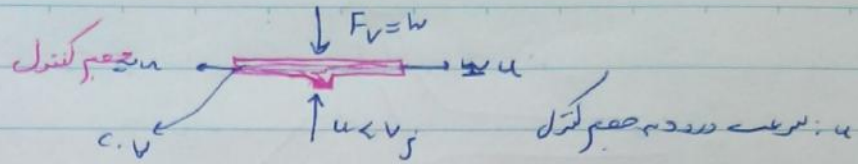 F_v = W
حجم کنترل u u
c.v u < v_j u : سرعت ورود به حجم کنترل